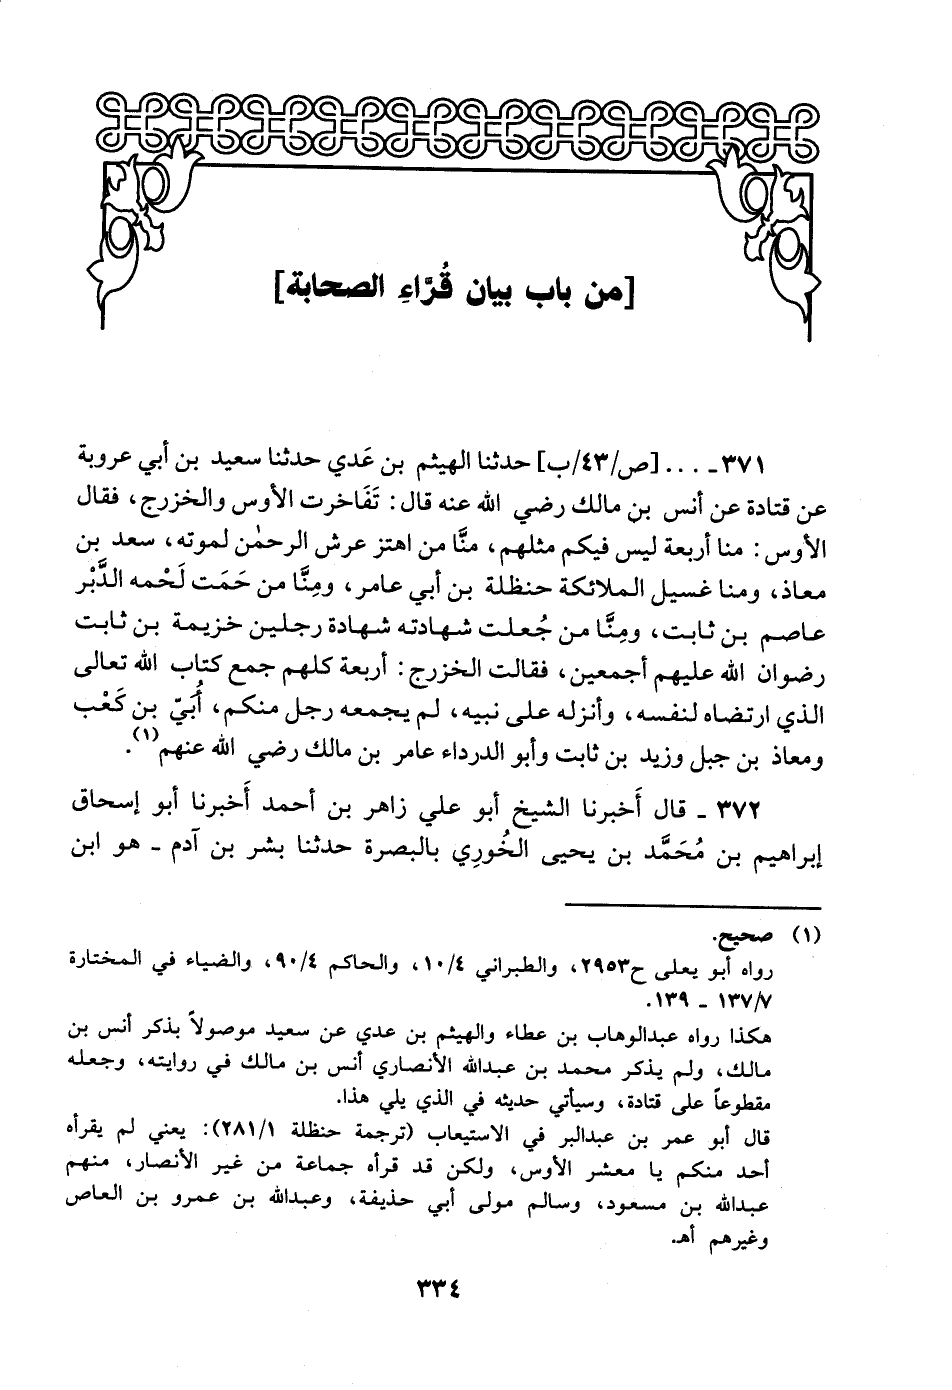 [من باب بيان قُرَّاءِ الصحابة]
٣٧١ـ .... [ص/٤٣/ب] حدثنا الهيثم بن عَدي حدثنا سعيد بن أبي عروبة
عن قتادة عن أنس بن مالك رضي الله عنه قال: تَفَاخرت الأوس والخزرج، فقال
الأوس: منا أربعة ليس فيكم مثلهم، منَّا من اهتز عرش الرحمٰن لموته، سعد بن
معاذ، ومنا غسيل الملائكة حنظلة بن أبي عامر، ومِنَّا من حَمَت لَحْمه الدَّبْر
عاصم بن ثابت، ومِنَّا من جُعلت شهادته شهادة رجلين خزيمة بن ثابت
رضوان الله عليهم أجمعين، فقالت الخزرج: أربعة كلهم جمع كتاب الله تعالى
الذي ارتضاه لنفسه، وأنزله على نبيه، لم يجمعه رجل منكم، أُبَيّ بن كَعْب
ومعاذ بن جبل وزيد بن ثابت وأبو الدرداء عامر بن مالك رضي الله عنهم(١).
٣٧٢ ـ قال أَخبرنا الشيخ أبو علي زاهر بن أحمد أَخبرنا أبو إسحاق
إبراهيم بن مُحَمَّد بن يحيى الخُورِي بالبصرة حدثنا بشر بن آدم ـ هو ابن
(١) صحيح.
رواه أبو يعلى ح٢٩٥٣، والطبراني ١٠/٤، والحاكم ٩٠/٤، والضياء في المختارة
١٣٧/٧ ـ ١٣٩.
هكذا رواه عبدالوهاب بن عطاء والهيثم بن عدي عن سعيد موصولاً بذكر أنس بن
مالك، ولم يذكر محمد بن عبدالله الأنصاري أنس بن مالك في روايته، وجعله
مقطوعاً على قتادة، وسيأتي حديثه في الذي يلي هذا.
قال أبو عمر بن عبدالبر في الاستيعاب (ترجمة حنظلة ٢٨١/١): يعني لم يقرأه
أحد منكم يا معشر الأوس، ولكن قد قرأه جماعة من غير الأنصار، منهم
عبدالله بن مسعود، وسالم مولى أبي حذيفة، وعبدالله بن عمرو بن العاص
وغيرهم أهـ.
٣٣٤